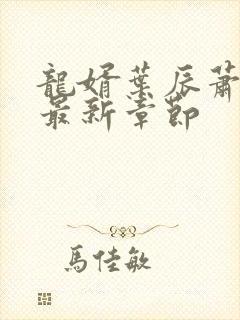 龍婿葉辰蕭
最新章節
馬佳敏